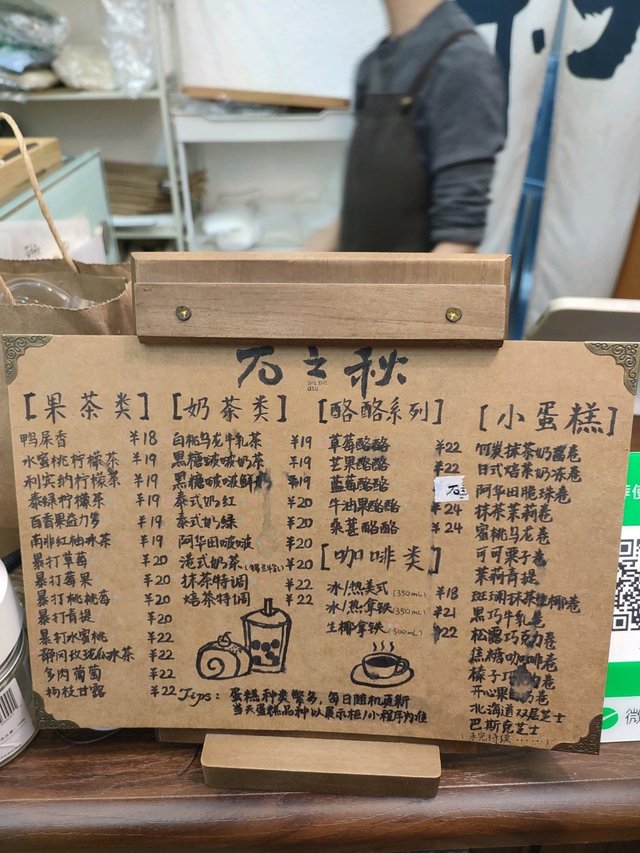 石之秋
[果茶类]
鸭屎香 ¥18
水蜜桃柠檬茶 ¥19
利宾纳柠檬茶 ¥19
泰绿柠檬茶 ¥19
百香果益力号 ¥19
南非红柚冰茶 ¥19
暴打草莓 ¥20
暴打莓果 ¥20
暴打桃桃莓 ¥20
暴打青提 ¥20
暴打水蜜桃 ¥22
静冈玫珑瓜冰茶 ¥22
多肉葡萄 ¥22
杨枝甘露 ¥22
[奶茶类]
白桃乌龙牛乳茶 ¥19
黑糖啵啵奶茶 ¥19
黑糖啵啵鲜 ¥19
泰式奶红 ¥20
泰式奶绿 ¥20
阿华田啵啵 ¥20
港式奶茶 ¥20
抹茶特调 ¥22
焙茶特调 ¥22
[酪酪系列]
草莓酪酪 ¥22
芒果酪酪 ¥22
蓝莓酪酪
牛油果酪酪 ¥24
桑葚酪酪 ¥24
[咖啡类]
冰/热美式(350mL) ¥18
冰/热拿铁(350mL) ¥21
生椰拿铁(500mL) ¥22
[小蛋糕]
竹炭抹茶奶酱卷
日式焙茶奶冻卷
阿华田脆珠卷
抹茶茉莉卷
蜜桃乌龙卷
可可栗子卷
茉莉青提
斑斓抹茶生椰卷
黑巧牛乳卷
松露巧克力卷
焦糖咖啡卷
榛子巧卷
开心果奶卷
北海道双层芝士
巴斯克芝士
(未完待续……)
Tips: 蛋糕种类繁多,每日随机更新
当天蛋糕品种以展示柜/小程序为准